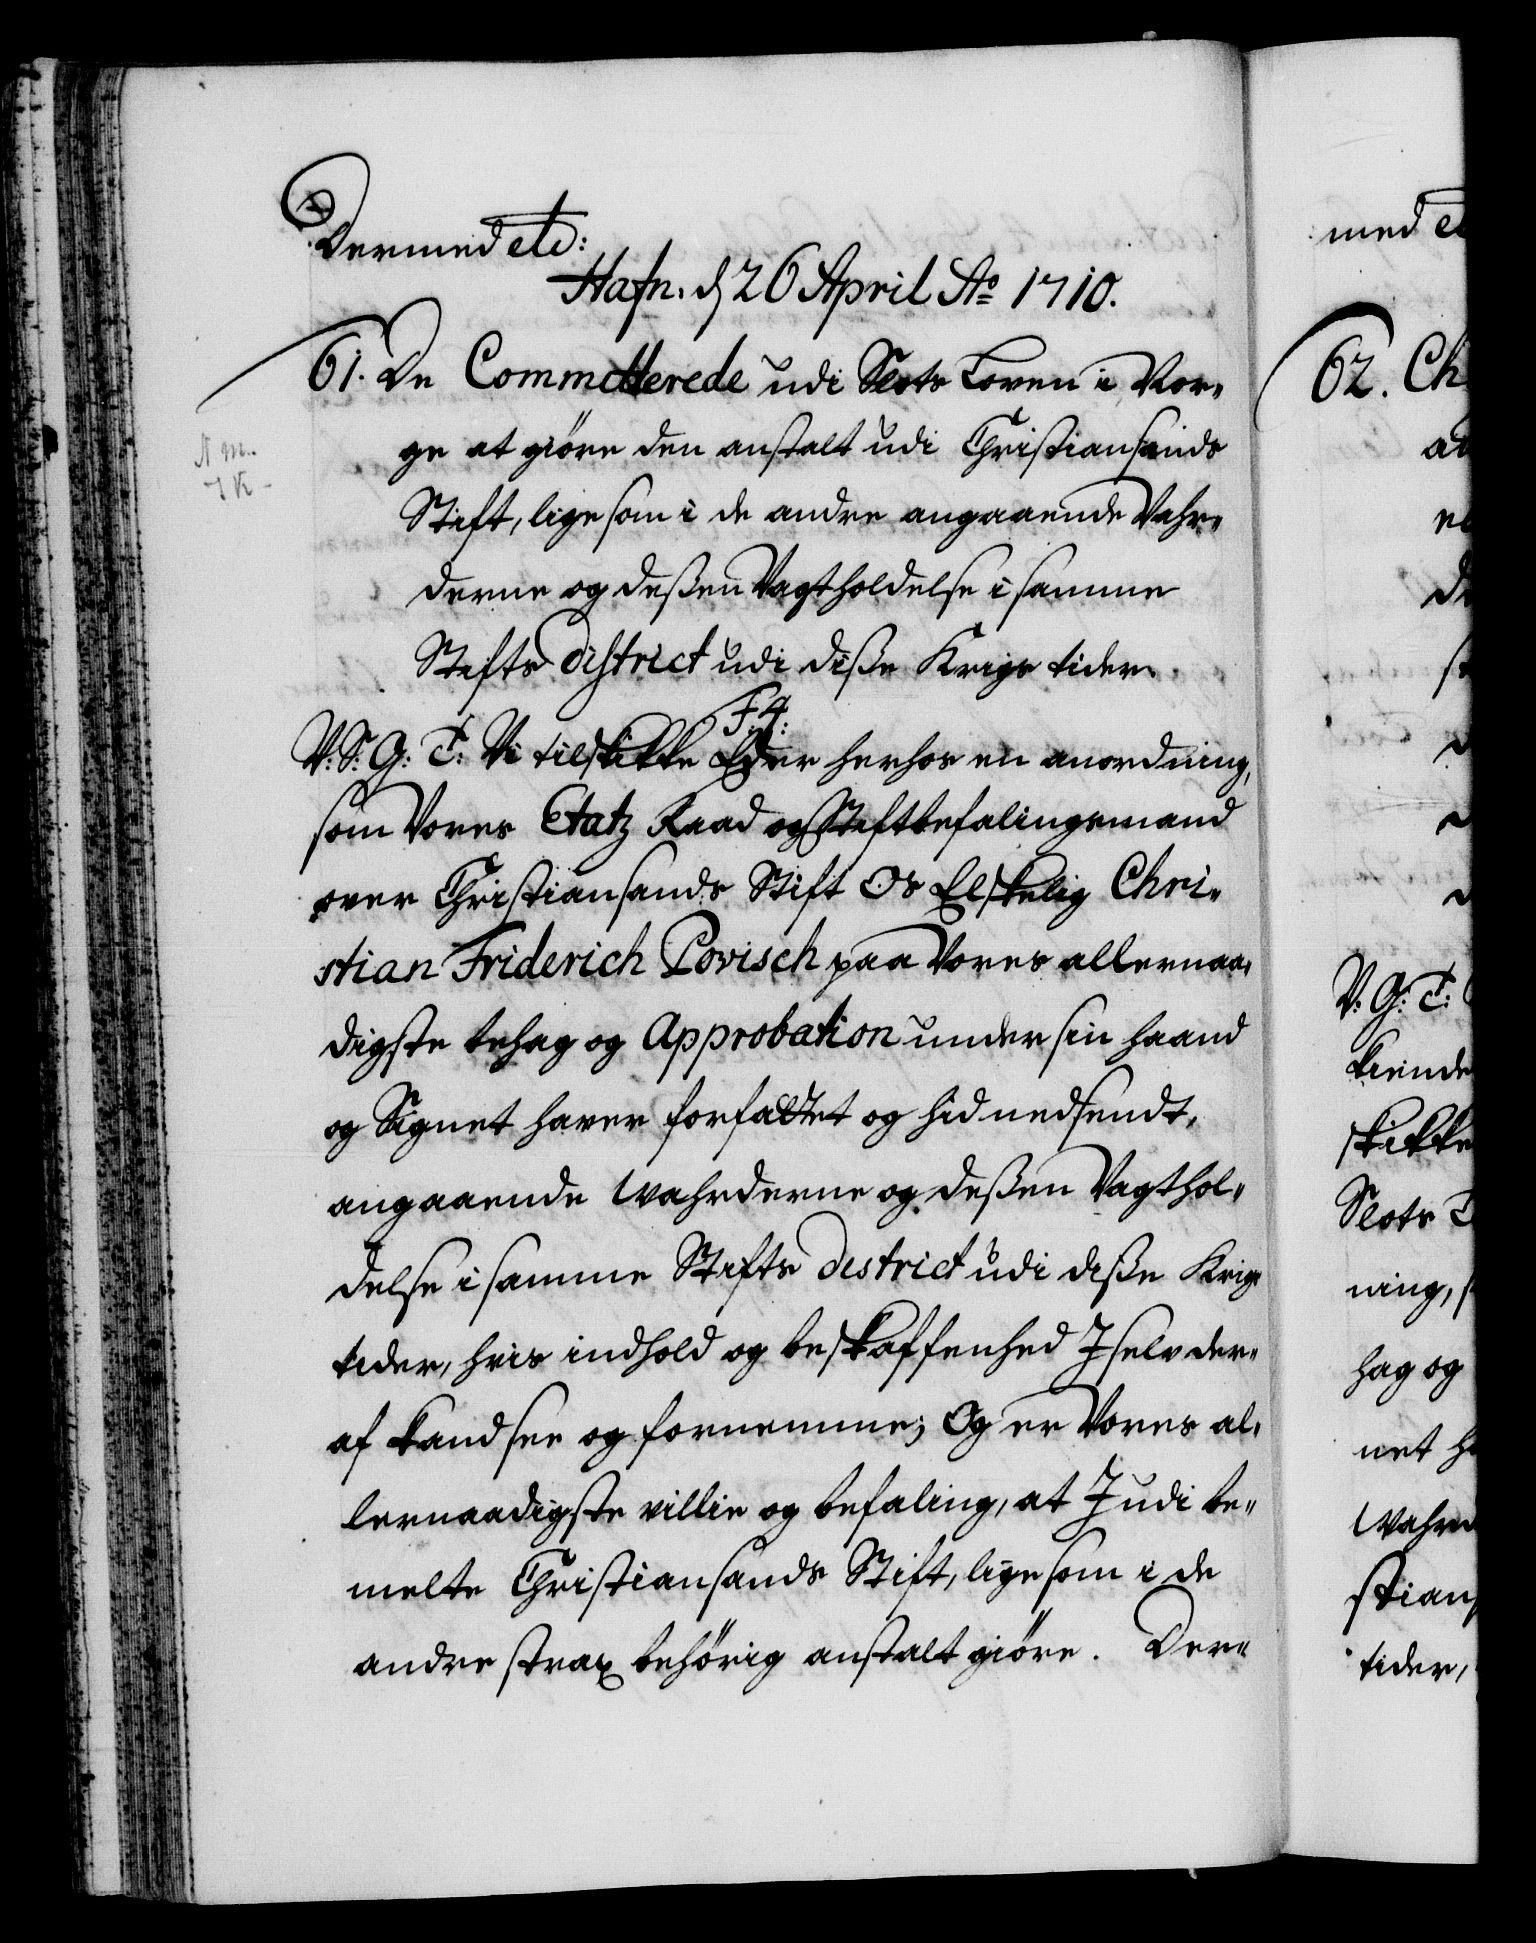 Dermed etc:
Hafn. d 26 April Ao 1710.
61. De Committerede udi Slots Loven i Nor-
ge at giöre den anstalt udi Christiansands
Stift, ligesom i de andre angaaende Vahr-
derne og deßen Vagtholdelse i samme
Stifts district udi diße Krigs tider.
F. 4:
V: S: G: T: Vi tilskikke Eder herhos en anordning,
som Vores Etatz Raad og Stiftbefalingsmand
over Christiansands Stift Os Elskelig Chri-
stian Friderich Povisch paa Vores allernaa-
digste behag og Approbation under sin haand
og Signet haver forfattet og hid nedsendt,
angaaende Wahrderne og deßen Vagthol-
delse i samme Stifts district udi diße Krigs
tider, hvis indhold og beskaffenhed I selv der-
af kand see og fornemme; Og er Vores al-
lernaadigste villie og befaling, at I udi be-
melte Christiansands Stift, ligesom i de
andre strax behörig anstalt giöre. Der-
med
62. Ch
V: G: T:
kiende
skikke
Slots
ning,
hag og
net
Wahr
stians
tider,